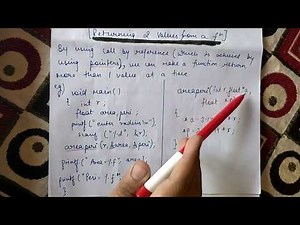 Returning 2 values from a fn
By using call by reference (which is achieved by
using pointers), we can make a function return
more than 1 value at a time
eg) void main()
{ int r;
float area, peri;
printf("enter radius\n");
scanf("%d", &r);
areaperi(r, &area, &peri);
printf("Area=%f", area);
printf("Peri=%f"
}
areaperi(int r, float *
float *
{